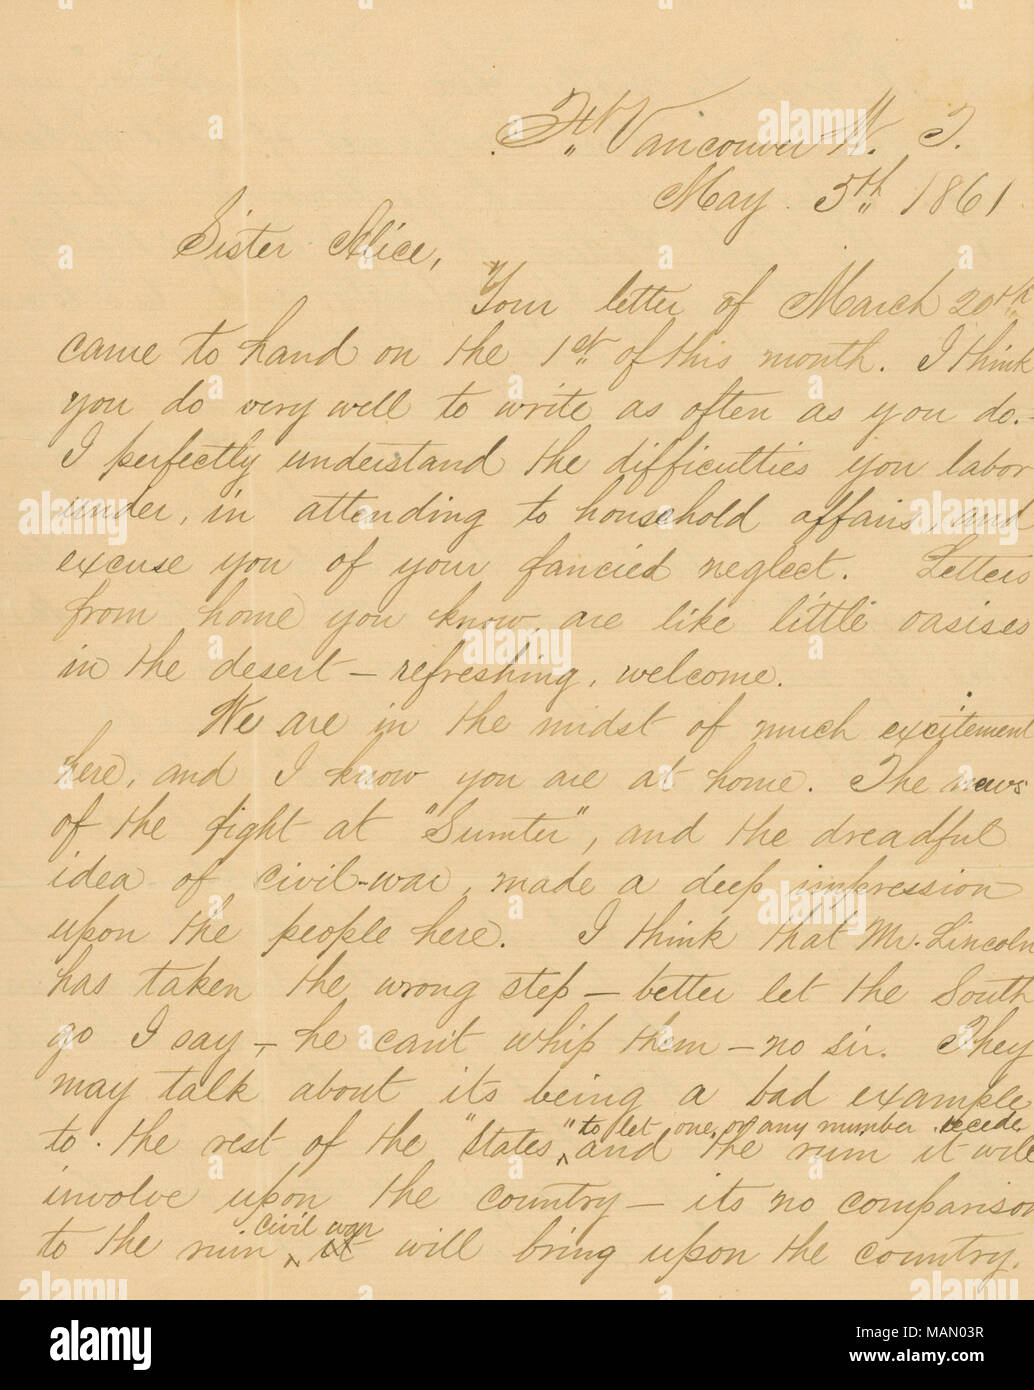 Ft. Vancouver W. T.
May 5th 1861
Sister Alice,
Your letter of March 20th
came to hand on the 1st of this month. I think
you do very well to write as often as you do. -
I perfectly understand the difficulties you labor
under, in attending to household affairs, and
excuse you of your fancied neglect. Letters
from home you know, are like little oasises
in the desert – refreshing, welcome.
We are in the midst of much excitement
here, and I know you are at home. The news
of the fight at "Sumter", and the dreadful
idea of civil-war, made a deep impression
upon the people here. I think that Mr. Lincoln
has taken the wrong step – better let the South
go I say – he can't whip them – no sir. They
may talk about its being a bad example
to let one, or any number secede
to the rest of the "States", ^ and the ruin it will
involve upon the country – its no comparison
civil war
to the ruin ^ it will bring upon the country.
alamy
Image ID: MAN03R
www.alamy.com